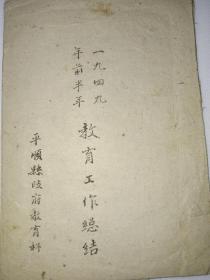 一九四九
年前半年
教育工作总结
平顺县政府教育科